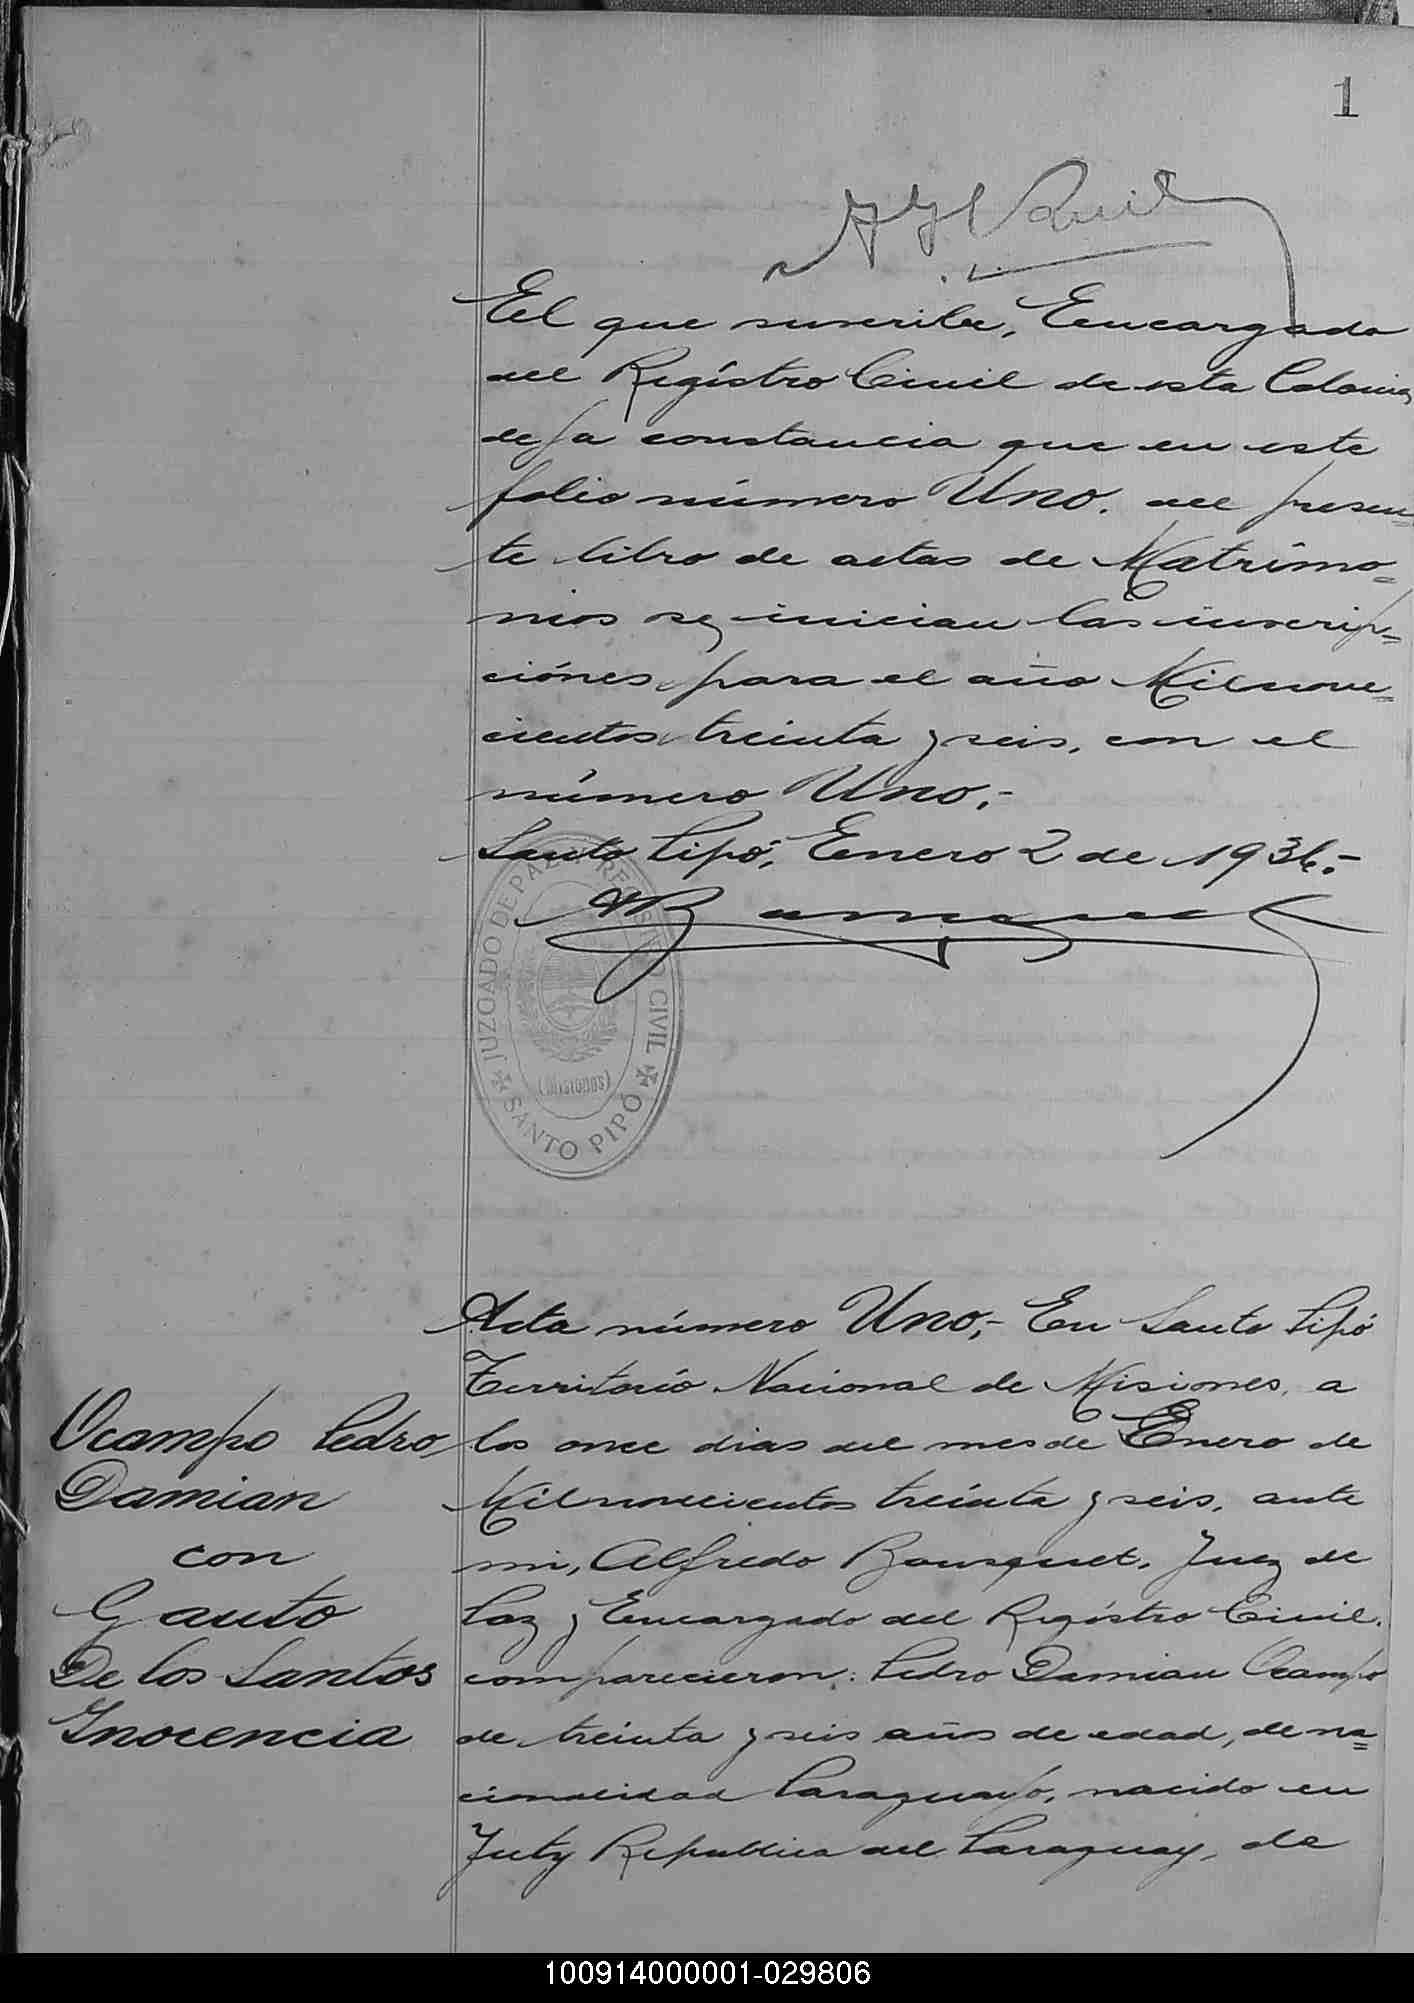 1
El que suscribe, Encargado
del Regístro Civil de esta Colonia,
deja constancia que en este
folio número Uno. del presen=
te libro de actas de Matrimo=
nios se inician las inscrip=
ciónes para el año Milnove=
cientos treinta y seis, con el
número Uno,-
Santo Pipó, Enero 2 de 1936.-
JUZGADO DE PAZ Y REGISTRO CIVIL
(Misiones)
SANTO PIPÓ
Acta número Uno,- En Santo Pipó
Territorio Nacional de Misiones, a
los once dias del mes de Enero de
Milnovecientos treinta y seis, ante
mi, Alfredo Bousquet, Juez de
Paz y Encargado del Regístro Civil,
comparecieron: Pedro Damian Ocampo
de treinta y seis años de edad, de na=
cionalidad Paraguayo, nacido en
Juty Republica del Paraguay, de
Ocampo Pedro
Damian
con
Gauto
De los Santos
Inocencia
100914000001-029806